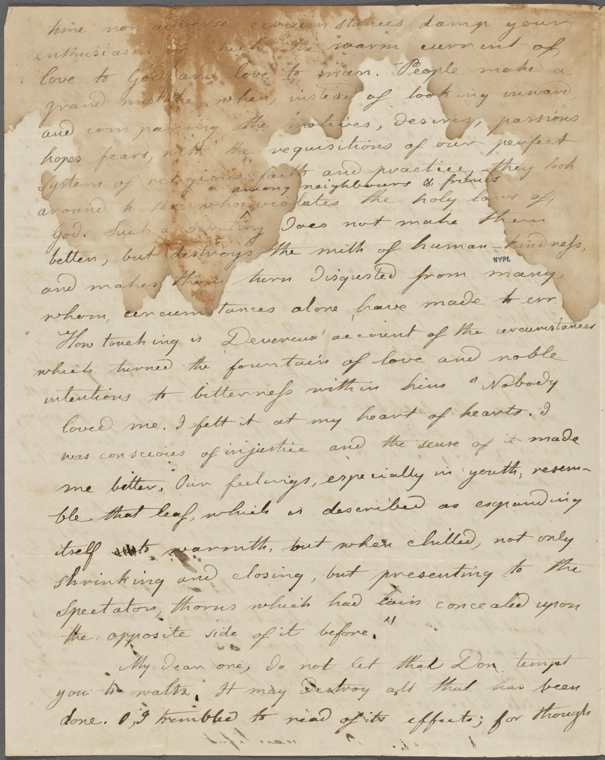 hire nor adverse circumstances damp your
enthusiasm or check the warm current of
love to God and love to man. People make a
grand mistake, when, instead of looking inward
and comparing the motives, desires, passions
hopes fears, with the requisitions of our perfect
system of religious faith and practice, they look
among neighbours & friends
around to see who violates the holy laws of
God. Such a does not make them
better, but destroys the milk of human-kindness,
NYPL
and makes them turn disgusted from many,
whom circumstances alone have made to err
How touching is Devereux' account of the circumstances
which turned the fountain of love and noble
intentions to bitterness within him "Nobody
loved me. I felt it at my heart of hearts. I
was conscious of injustice and the sense of it made
me bitter. Our feelings, especially in youth, resem-
ble that leaf, which is described as expanding
itself to warmth, but when chilled, not only
shrinking and closing, but presenting to the
Spectator, thorns which had lain concealed upon
the opposite side of it before."
My dear one, do not let that Don tempt
you to waltz. It may destroy all that has been
done. O, I trembled to read of its effects; for though